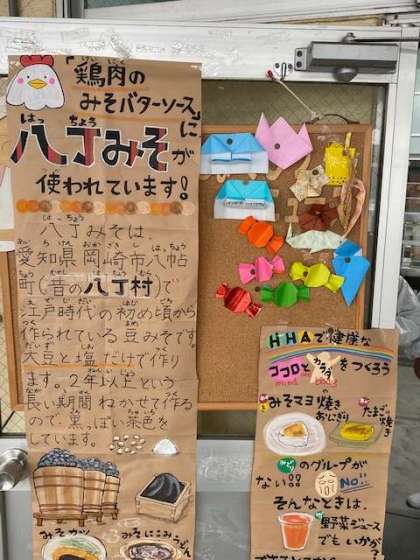 「鶏肉の
みそバターソースに
はっちょう
八丁みそが
使われています!
八丁みそは、
愛知県岡崎市八帖
町(昔の八丁村)で
江戸時代の初め頃から
作られている豆みそです。
大豆と塩だけで作り
ます。2年以上という
長い期間ねかせて作る
ので、黒っぽい茶色を
しています。
みそカツ
みそにこみうどん
HHAで健康な
ココロとカラダをつくろう
みそマヨ焼き
おにぎり
たまご焼き
のグループが
ない!! NO..
そんなときは、
野菜ジュース
でもいいから